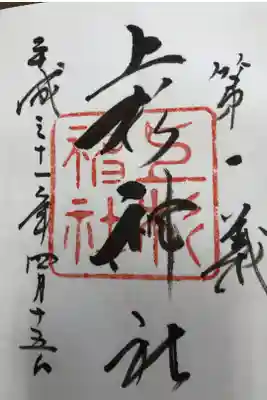 第一義
上杉神社
平成三十一年四月十五日